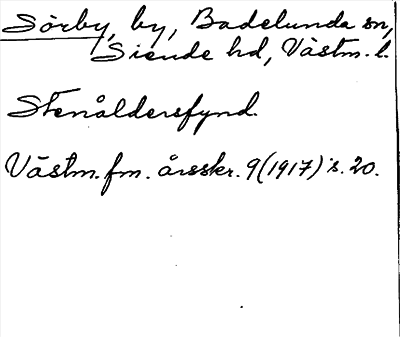 Sörby, by, Badelunda sn,
Siende hd, Västm. l.
Stenåldersfynd.
Västm. fm. årsskr. 9(1917) s. 20.